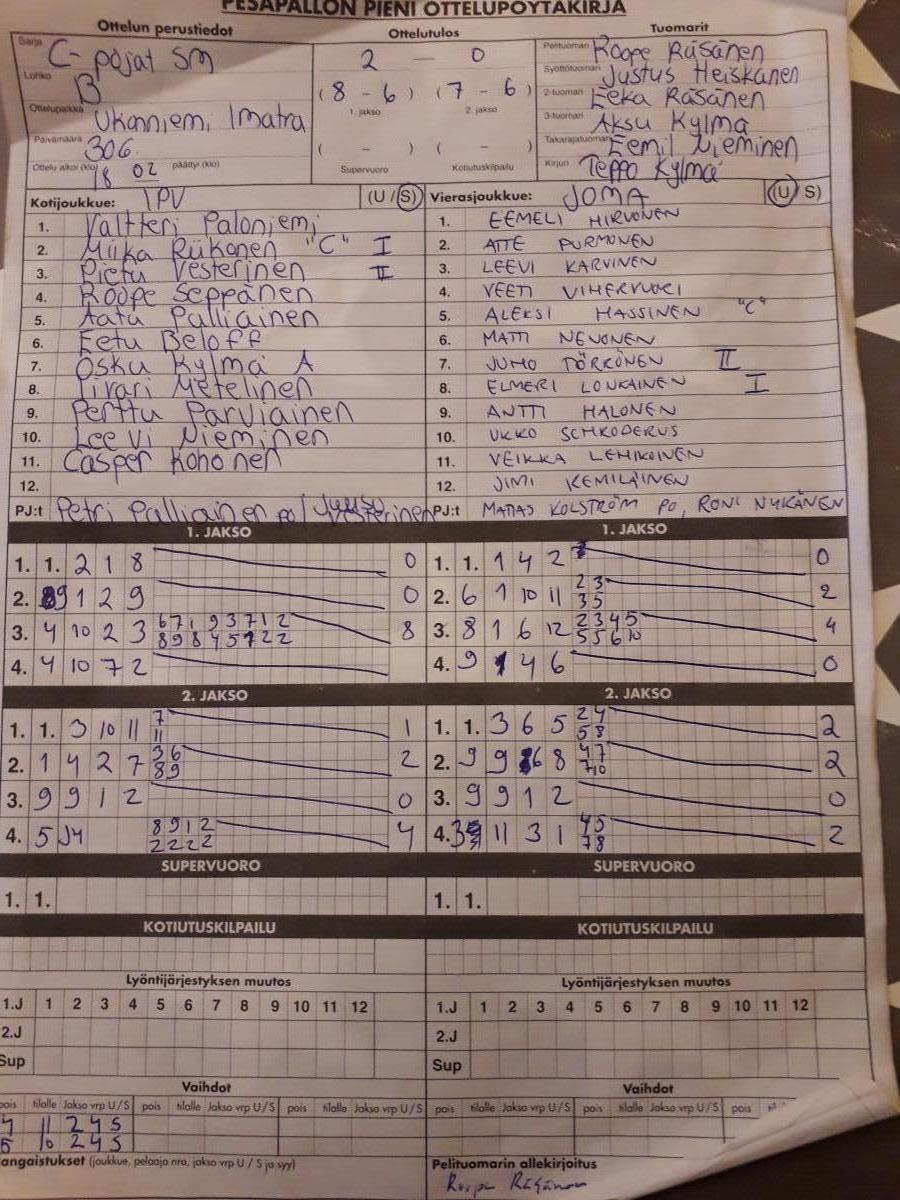 PESÄPALLON PIENI OTTELUPÖYTÄKIRJA
Ottelun perustiedot
Ottelutulos
Tuomarit
Sarja C-pojat SM
Lohko B
Ottelupaikka Ukonniemi, Imatra
Päivämäärä 30.6.
Ottelu alkoi (klo) 18 02 päättyi (klo)
2 - 0
(8 - 6) (7 - 6)
1. jakso 2. jakso
( - ) ( - )
Supervuoro Kotiutuskilpailu
Pelituomari Roope Räsänen
Syöttötuomari Justus Heiskanen
2-tuomari Eeka Räsänen
3-tuomari Aksu Kylmä
Takarajatuomari Eemil Nieminen
Kirjuri Teppo Kylmä
Kotijoukkue: IPV (U/S)
1. Valtteri Paloniemi
2. Miika Riikonen "C" I
3. Pietu Vesterinen II
4. Roope Seppänen
5. Aatu Palliainen
6. Eetu Beloff
7. Osku Kylmä A
8. Iivari Metelinen
9. Perttu Parviainen
10. Leevi Nieminen
11. Casper Kohonen
12.
PJ:t Petri Palliainen po / Juuso Vesterinen
Vierasjoukkue: JOMA (U/S)
1. EEMELI HIRVONEN
2. ATTE PURMONEN
3. LEEVI KARVINEN
4. VEETI VIHERVUORI
5. ALEKSI HASSINEN "C"
6. MATTI NEVONEN
7. JUHO TÖRRÖNEN II
8. ELMERI LOUKAINEN I
9. ANTTI HALONEN
10. UKKO SCHRODERUS
11. VEIKKA LEHIKOINEN
12. JIMI KEMILÄINEN
PJ:t MATIAS KOLSTRÖM PO, RONI NYKÄNEN
1. JAKSO
1. 1. 2 1 8 0
2. 9 1 2 9 0
3. 4 10 2 3 6 7 1 9 3 7 1 2 8
8 9 8 4 5 7 2 2
4. 4 10 7 2
1. JAKSO
1. 1. 1 4 2 0
2. 6 1 10 11 2 3 2
3 5
3. 8 1 6 12 2 3 4 5 4
5 5 6 10
4. 9 1 4 6 0
2. JAKSO
1. 1. 3 10 11 7 1
11
2. 1 4 2 7 3 6 2
8 9
3. 9 9 1 2 0
4. 5 J4 8 9 1 2 4
2 2 2 2
2. JAKSO
1. 1. 3 6 5 2 4 2
5 8
2. 9 9 6 8 4 7 2
7 10
3. 9 9 1 2 0
4. 3 11 3 1 4 5 2
7 8
SUPERVUORO
1. 1.
SUPERVUORO
1. 1.
KOTIUTUSKILPAILU
KOTIUTUSKILPAILU
Lyöntijärjestyksen muutos
1.J 1 2 3 4 5 6 7 8 9 10 11 12
2.J
Sup
Lyöntijärjestyksen muutos
1.J 1 2 3 4 5 6 7 8 9 10 11 12
2.J
Sup
Vaihdot
pois tilalle Jakso vrp U/S pois tilalle Jakso vrp U/S pois tilalle Jakso vrp U/S
4 11 2 4 S
5 10 2 4 S
Vaihdot
pois tilalle Jakso vrp U/S pois tilalle Jakso vrp U/S pois
angaistukset (joukkue, pelaaja nro, jakso vrp U / S ja syy)
Pelituomarin allekirjoitus
Roope Räsänen